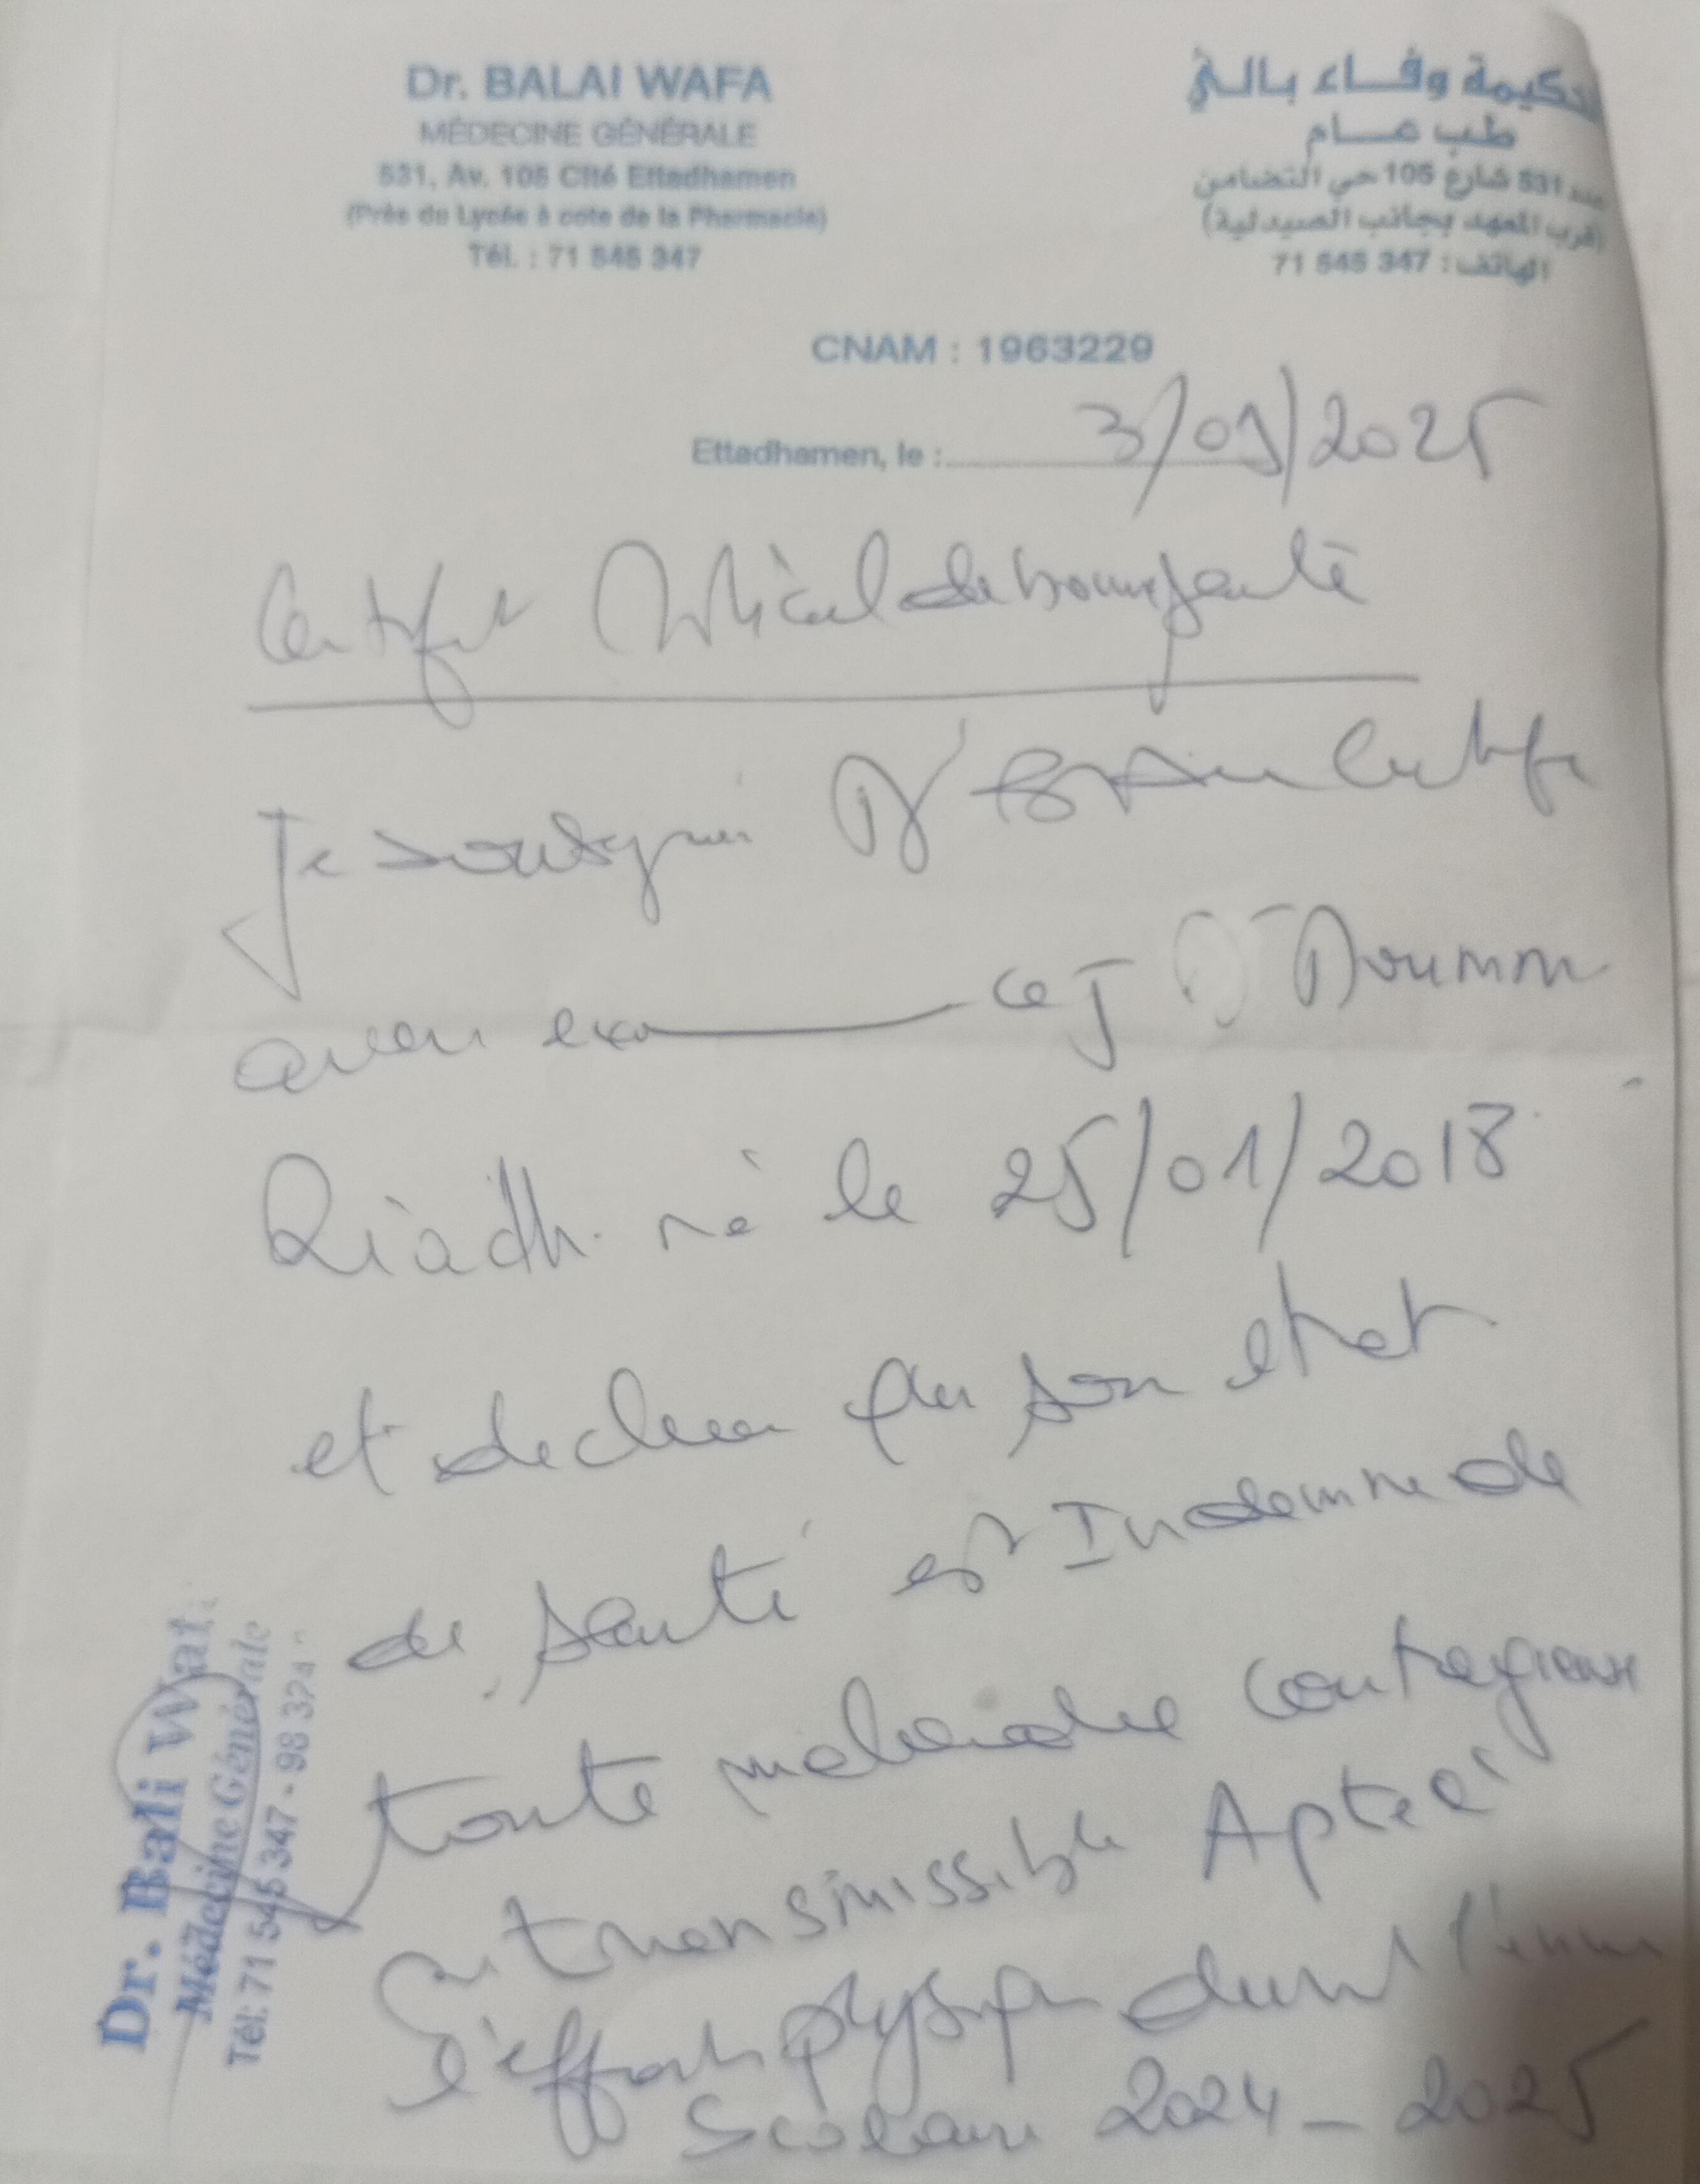 Dr. BALAI WAFA
MÉDECINE GÉNÉRALE
531, Av. 105 Cité Ettadhamen
(Près du Lycée à cote de la Pharmacie)
Tél. : 71 545 347
حكيمة وفاء بالي
طب عام
عدد 531 شارع 105 حي التضامن
(قرب المعهد بجانب الصيدلية)
الهاتف : 71 545 347
CNAM : 1963229
Ettadhamen, le : 3/01/2025
Certificat Médical de bonne santé
Je soussigné Dr certifie
avoir exa ce J
Riadh. né le 25/01/2018
et declare que son etat
de santé est Indemne de
toute maladie contagieuse
ou transmissible Apte à
l'effort physique durant l'année
Scolaire 2024 - 2025
Dr. Bali Wafa
Médecine Générale
Tél: 71 545 347 - 98 324